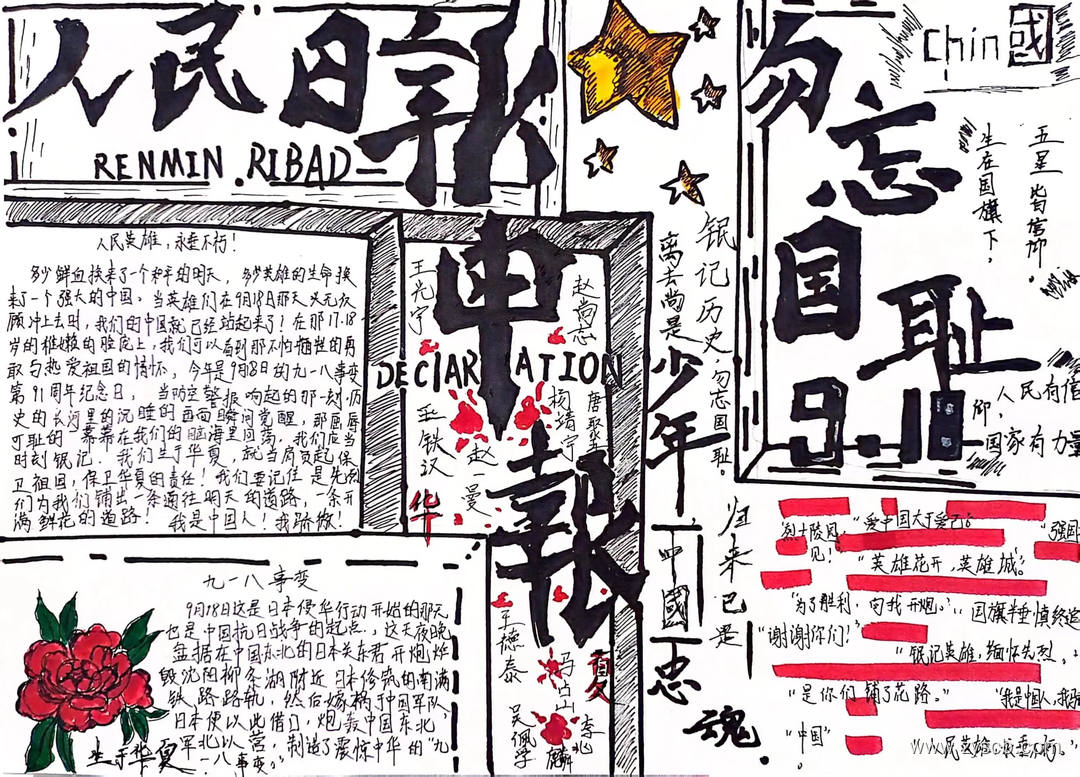 人民日報
RENMIN.RIBAD
勿忘国耻
9.18
Chin國
五星皆信仰。
生在国旗下，
人民有信仰，
国家有力量
人民英雄，永垂不朽！
多少鲜血换来了一个和平的明天，多少英雄的生命换
来了一个强大的中国，当英雄们在9月18日那天义无反
顾冲上去时，我们的中国就已经站起来了！在那17.18
岁的稚嫩的脸庞上，我们可以看到那不怕牺牲的勇
敢与热爱祖国的情怀，今年是9月8日的九一八事变
第91周年纪念日，当防空警报响起的那一刻，历
史的长河里的沉睡的
时刻银记，我们生于华夏，就当肩负起保
卫祖国，保卫华夏的责任！我们要记住是先烈
们为我们铺出一条通往明天的道路，一条开
满鲜花的道路！我是中国人！我骄傲！
申報
DECIARATION
王光宇
赵尚志
王铁汉
赵一曼
杨靖宇
华
王德泰
冯占山
夏
吴佩孚
李兆麟
银记历史
勿忘国耻。
离去尚是
少年
归来已是
中國忠魂。
九一八事变
9月18日这是日本侵华行动开始的那天
也是中国抗日战争的起点，这天夜晚，
盘据在中国东北的日本关东君开炮炸
毁沈阳柳条湖附近日本修筑的南满
铁路路轨，然后嫁祸于中国军队
日本便以此借口，炮轰中国东北，
军北以营，制造了震惊中华的“九
一八事变。”
生于华夏
烈士陵园，
见！
“爱中国大于爱己。”
“强国
“英雄花开，英雄城。”
“为了胜利，向我开炮。”
国旗半垂，慎终追
“谢谢你们！”
“银记英雄，缅怀先烈。”
“是你们铺了花路。”
“我是中国人，我骄
“中国”
人民英雄永垂不朽。